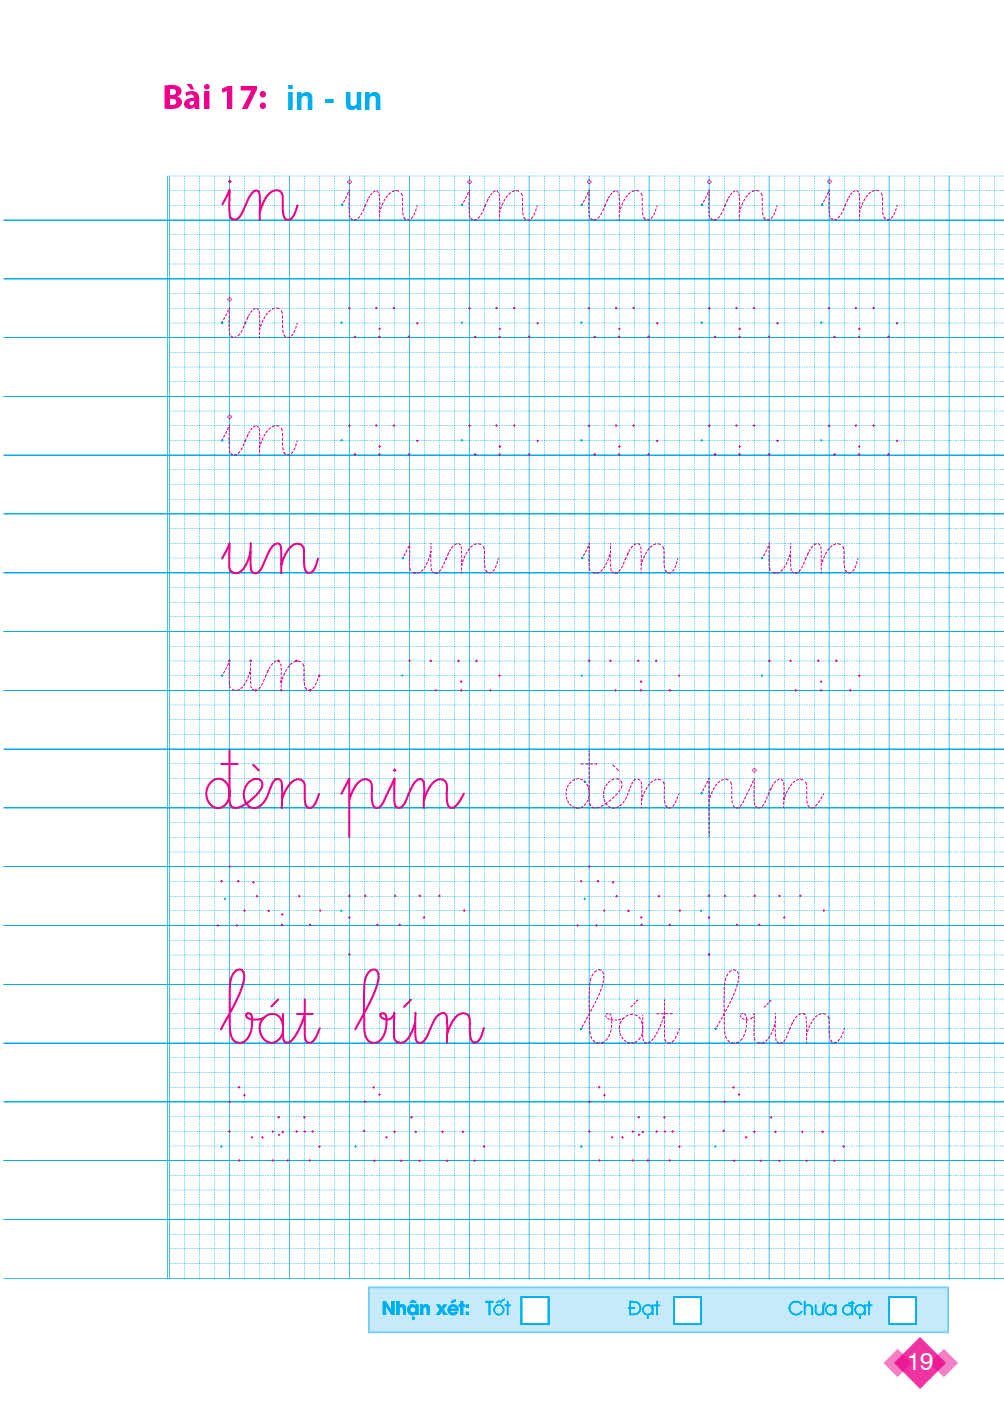 Bài 17: in - un
in in in in in in
in
in
un un un un
un
đèn pin đèn pin
bát bún bát bún
Nhận xét: Tốt Đạt Chưa đạt
19